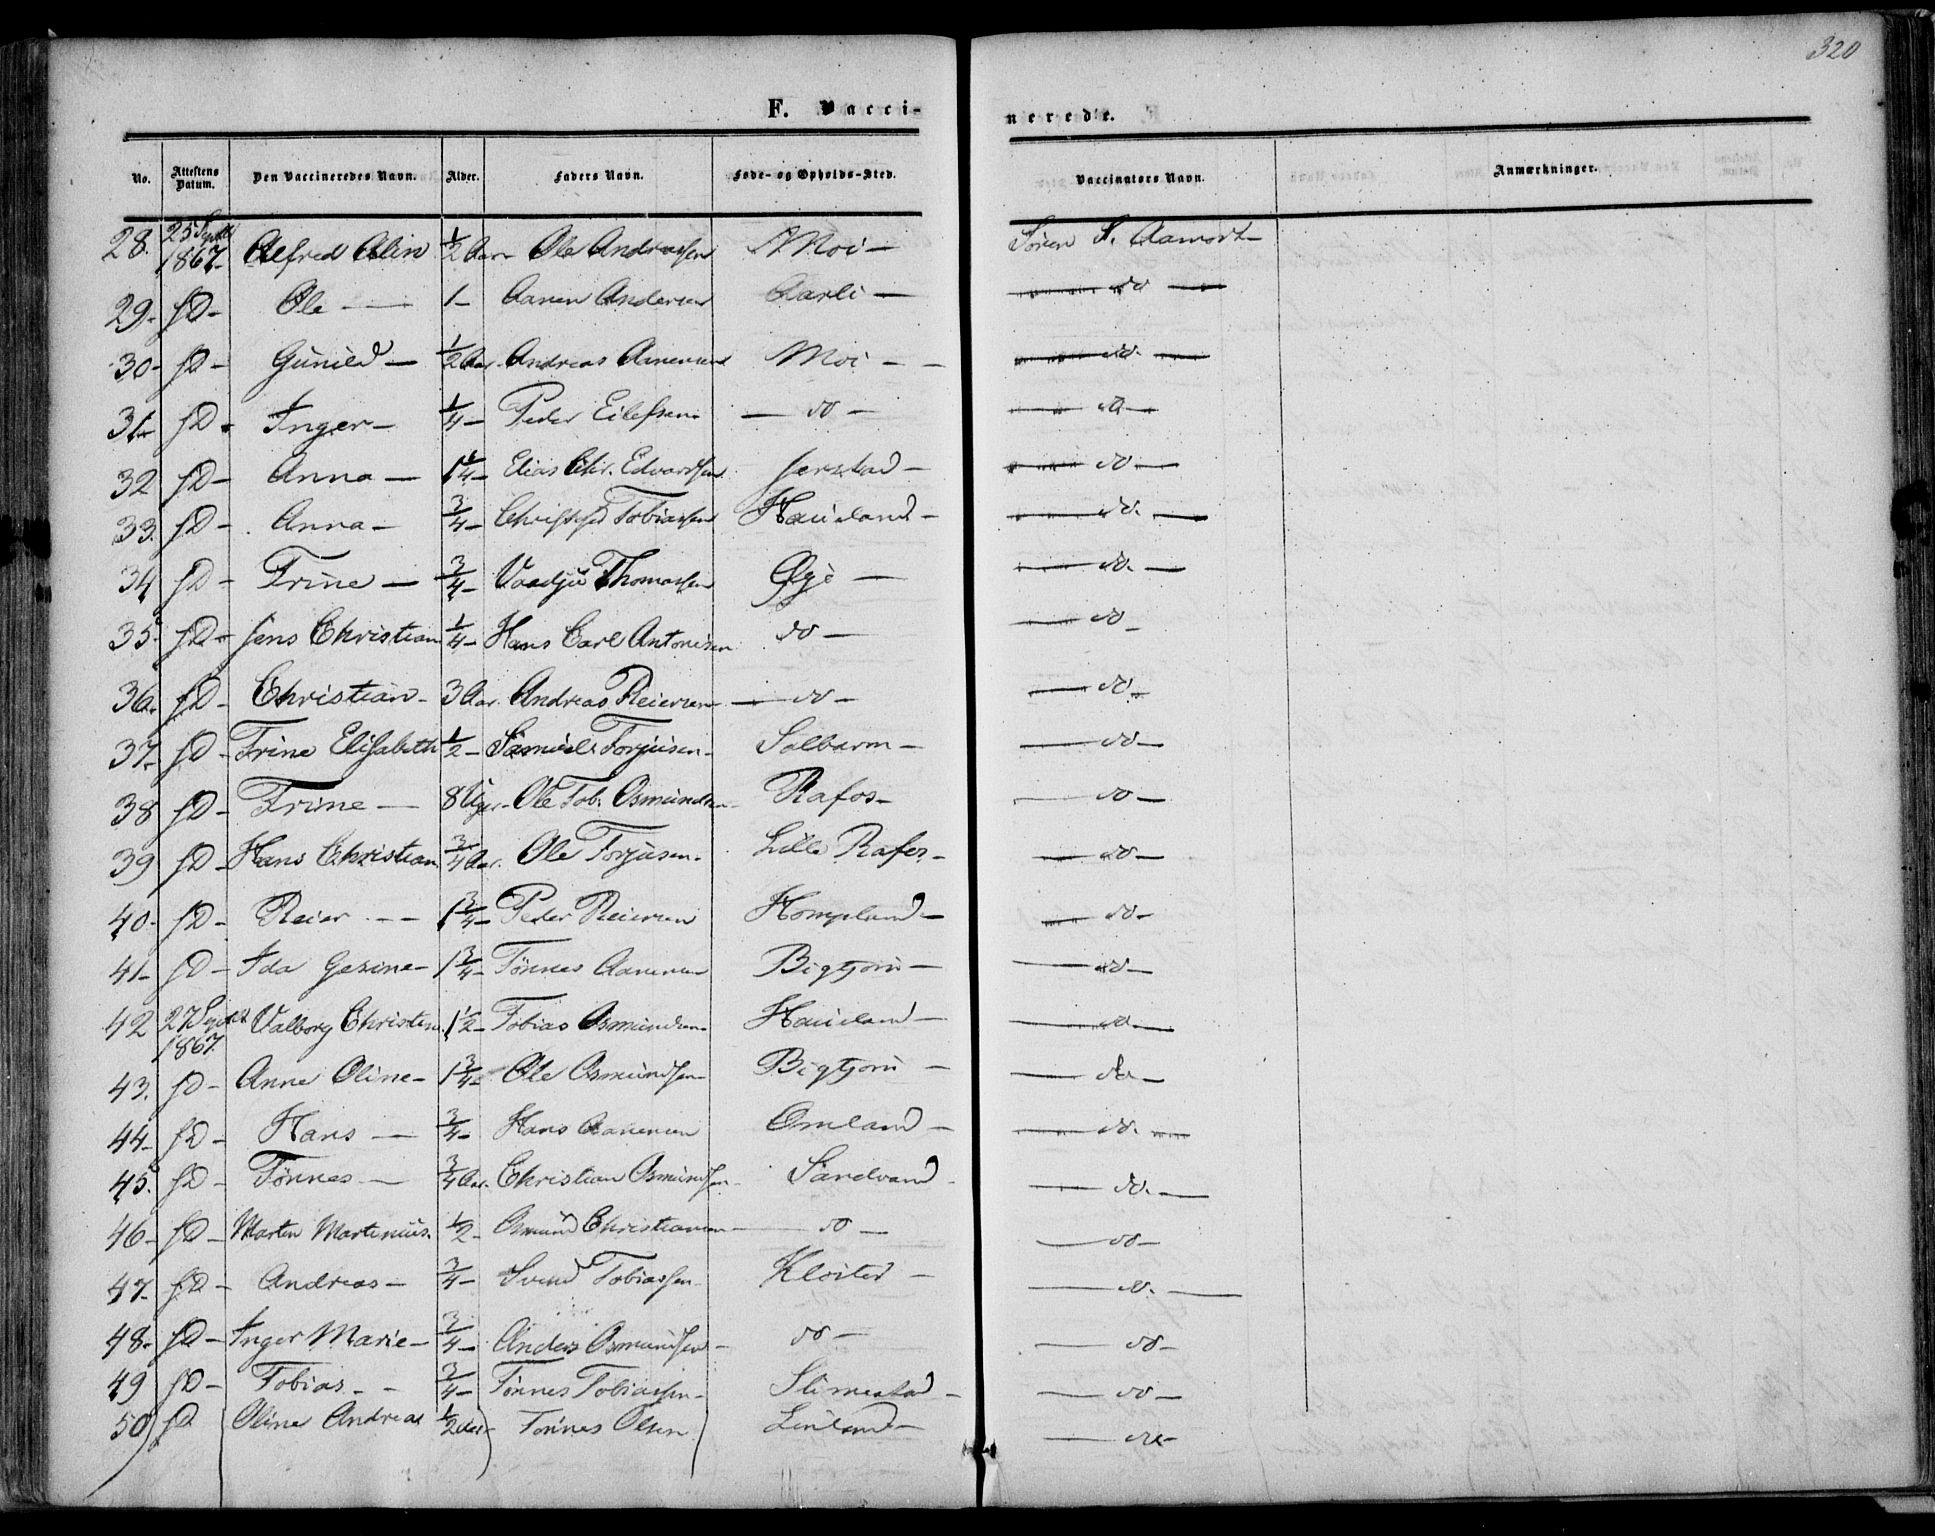 320
F. Vaccinerede.
No. Attestens Datum. Den Vaccineredes Navn. Alder. Faders Navn. Føde- og Opholds-Sted. Vaccinators Navn. Anmærkninger.
28. 25 Septbr 1867. Alfred Alin 1/2 Aar Ole Andreassen Moi — Søren S. Aamodt
29. fD — Ole — 1 — Aanen Andersen Aarli — do —
30 — fD — Gunild — 1/2 Aar. Andreas Aanensen Moi — — do. —
31 — fD — Inger — 1/4 — Peder Eilefsen — do — — do —
32 fD — Anna — 1 1/4 — Elias Chr. Edvardsen Jerstad — — do —
33. fD — Anna — 3/4 — Christophd Tobiassen Haueland — — do. —
34 fD — Trine — 3/4 — Thomassen Øye — — do. —
35. fD — Jens Christian 1/4 — Hans Carl Antonisen do — — do —
36. fD — Christian — 3 Aar. Andreas Reiersen — do — — do —
37. fD — Trine Elisabeth 1/2 — Samuel Torjusen — Solbærm — — do —
38 fD — Trine — 8 Uger — Ole Tob. Osmundsen Rafos — — do —
39 fD — Hans Christian 3/4 Aar. Ole Torjusen. Lille Rafos — — do —
40. fD — Reier — — 1 3/4 — Peder Reiersen Hompland — — do —
41 — fD — Ida Gesine — 1 3/4 — Tønnes Aanensen Bigtjørn — — do —
42 27 Septbr 1867. Valborg Christine 1 1/2 — Tobias Osmundsen Haueland — — do. —
43. fD — Anne Oline — 1 3/4 — Ole Osmundsen Bigtjørn — — do —
44. fD — Hans — 3/4 — Hans Aanensen Omland — — do. —
45. fD — Tønnes — 3/4 Aar. Christian Osmundsen Sandvand — — do. —
46 — fD — Marten Martinius. 1/2 — Osmund Christiansen — do — — do —
47. fD — Andreas — 3/4 — Svend Tobiassen Kloster — — do. —
48. fD — Inger Marie — 3/4 — Anders Osmundsen — do — — do —
49 fD — Tobias — — 3/4 — Tønnes Tobiassen — Slimestad — — do —
50 fD Oline Andrea 1/2 Aar Tønnes Olsen Linland — — do —